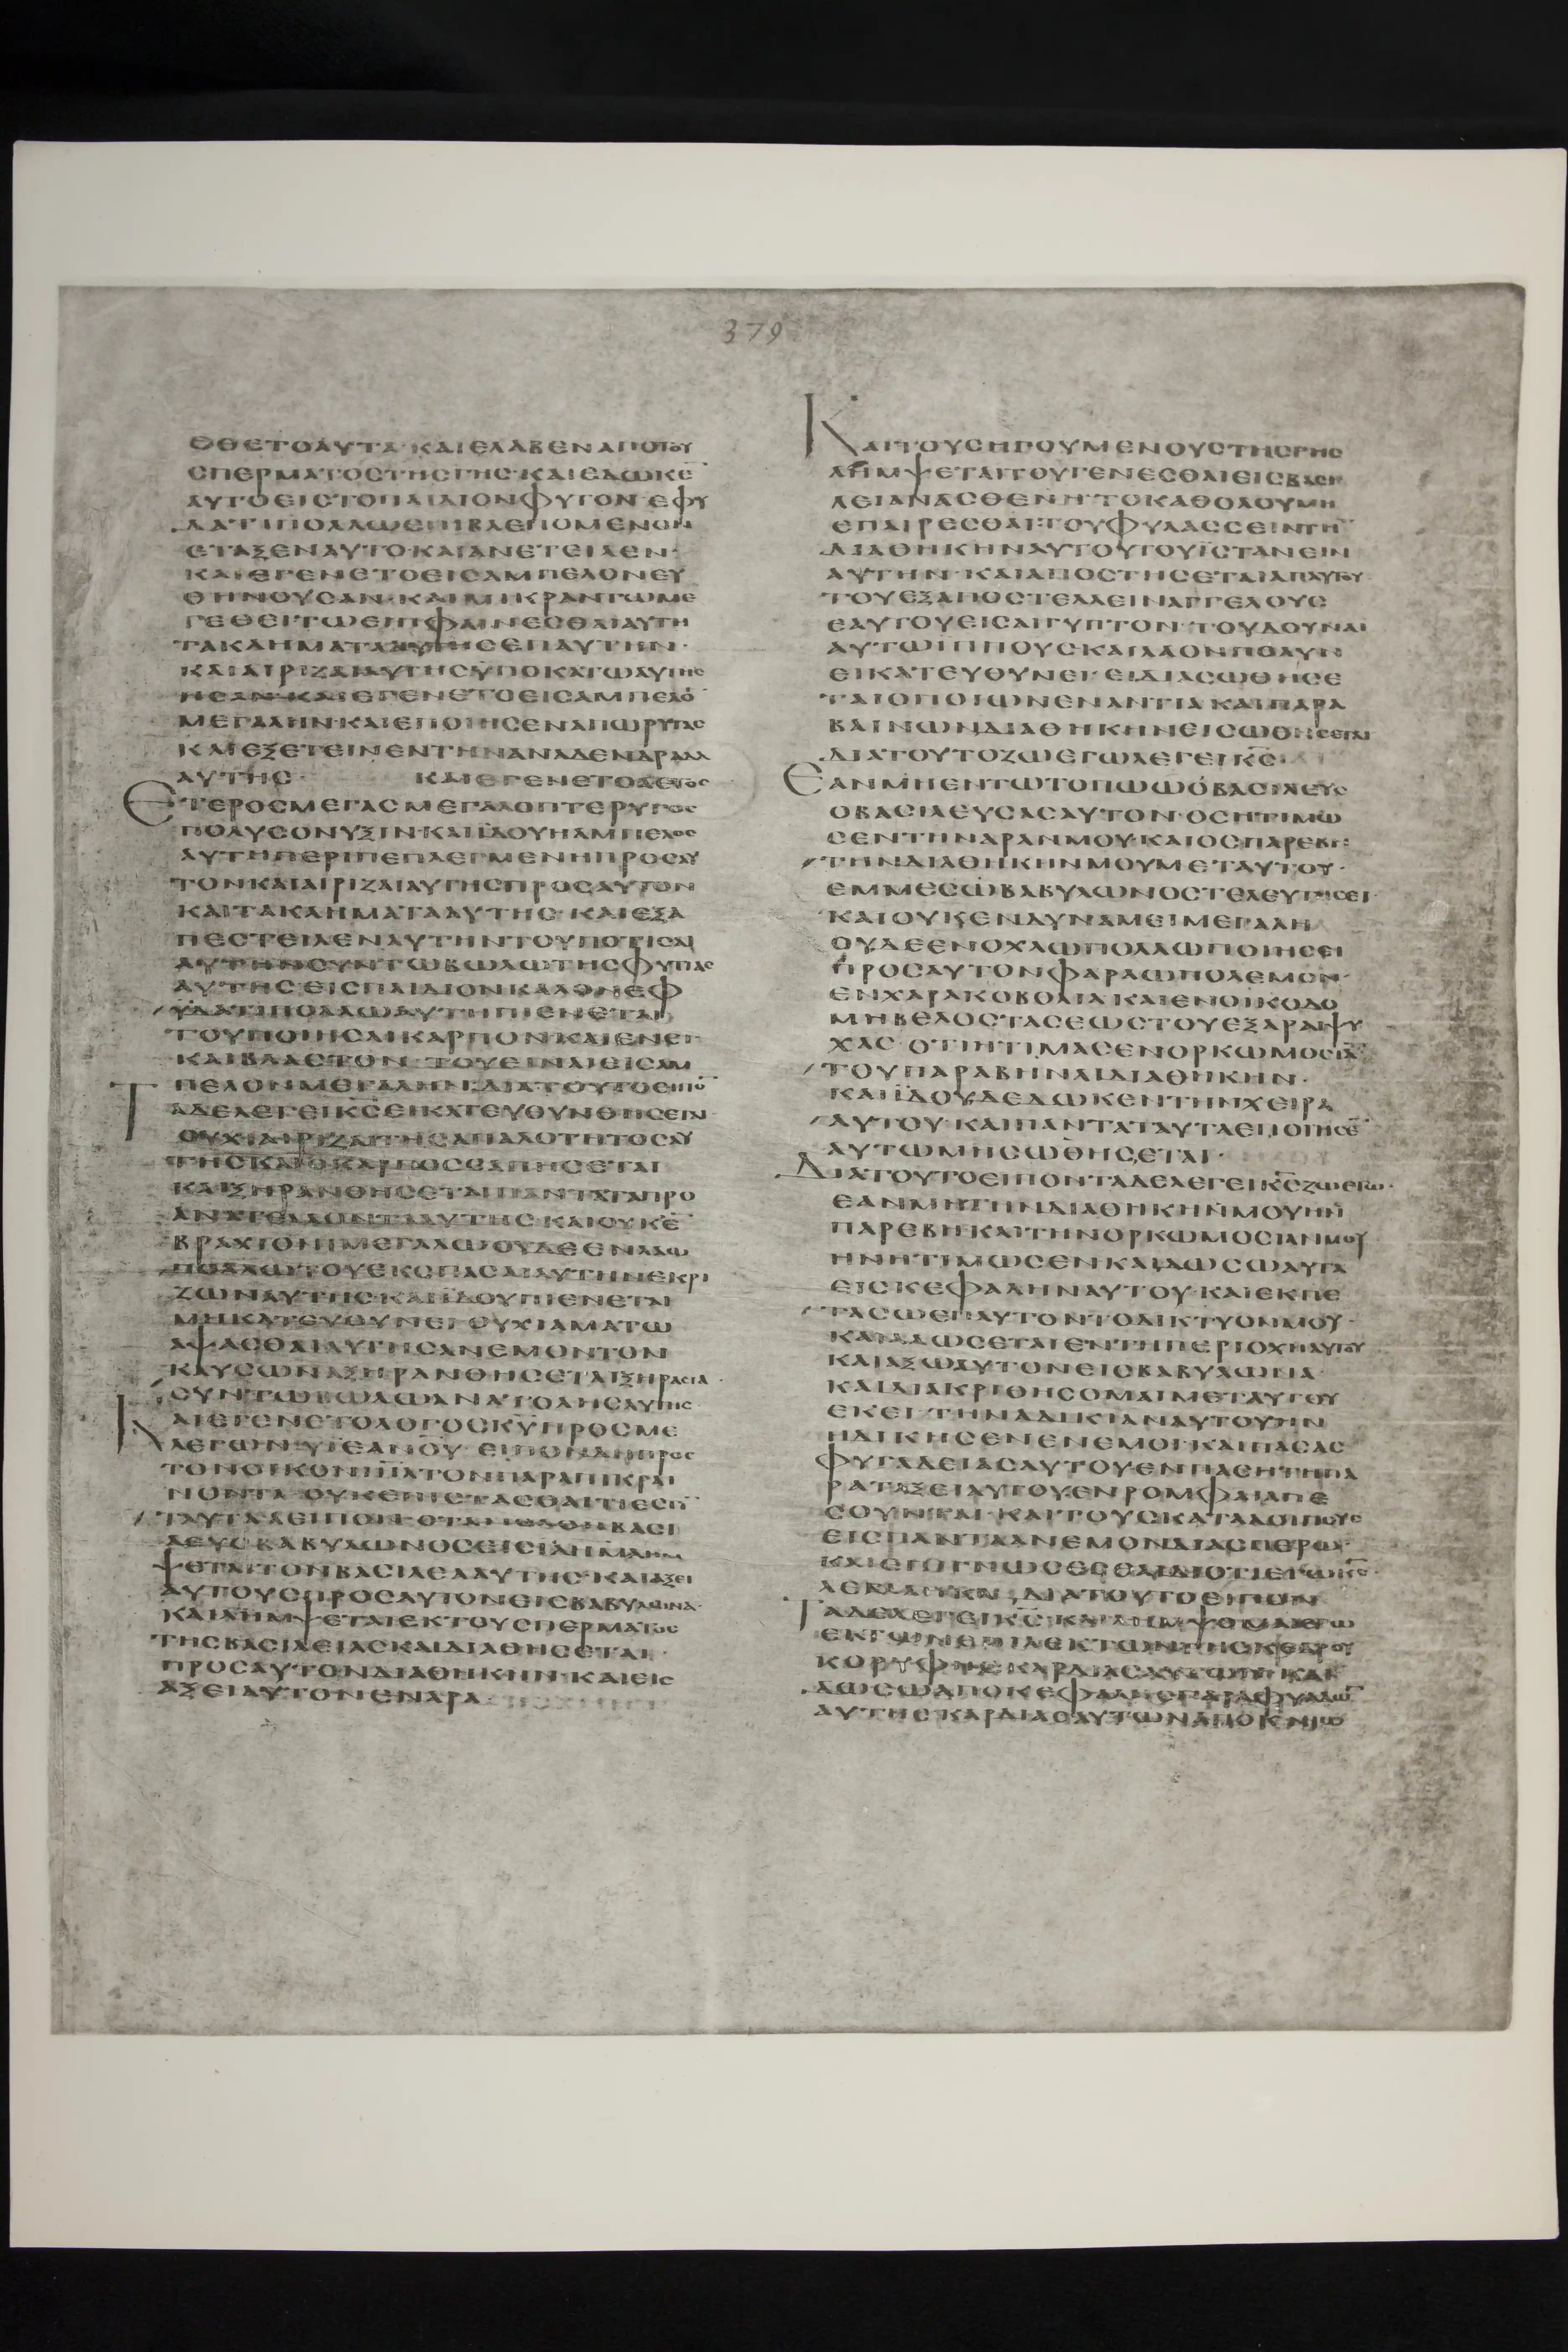 379
ΕΘΕΤΟΑΥΤΑ·ΚΑΙΕΛΑΒΕΝΑΠΟΤΟΥ
ΣΠΕΡΜΑΤΟΣΤΗΣΓΗΣ·ΚΑΙΕΔΩΚΕ̅
ΑΥΤΟΕΙΣΤΟΠΑΙΔΙΟΝΦΥΤΟΝ·ΕΦΥ
ΔΑΤΙΠΟΛΛΩΕΠΙΒΛΕΠΟΜΕΝΟΝ
ΕΤΑΞΕΝΑΥΤΟ·ΚΑΙΑΝΕΤΕΙΛΕΝ·
ΚΑΙΕΓΕΝΕΤΟΕΙΣΑΜΠΕΛΟΝΕΥ
ΘΗΝΟΥΣΑΝ·ΚΑΙΜΙΚΡΑΝΤΩΜΕ
ΓΕΘΕΙΤΩΕΠΙΦΑΙΝΕΣΘΑΙΑΥΤΗ
ΤΑΚΛΗΜΑΤΑΑΥΤΗΣΕΠΑΥΤΗΝ·
ΚΑΙΑΙΡΙΖΑΙΑΥΤΗΣΥΠΟΚΑΤΩΑΥΤΗΣ
ΗΣΑΝ·ΚΑΙΕΓΕΝΕΤΟΕΙΣΑΜΠΕΛΟ̅
ΜΕΓΑΛΗΝ·ΚΑΙΕΠΟΙΗΣΕΝΑΠΩΡΥΓΑΣ
ΚΑΙΕΞΕΤΕΙΝΕΝΤΗΝΑΝΑΔΕΝΔΡΑΔΑ
ΑΥΤΗΣ· ΚΑΙΕΓΕΝΕΤΟΑΕΤΟΣ
ΕΤΕΡΟΣΜΕΓΑΣΜΕΓΑΛΟΠΤΕΡΥΓΟΣ
ΠΟΛΥΣΟΝΥΞΙΝ·ΚΑΙΪΔΟΥΗΑΜΠΕΛΟΣ
ΑΥΤΗΠΕΡΙΠΕΠΛΕΓΜΕΝΗΠΡΟΣΑΥ
ΤΟΝΚΑΙΑΙΡΙΖΑΙΑΥΤΗΣΠΡΟΣΑΥΤΟΝ
ΚΑΙΤΑΚΛΗΜΑΤΑΑΥΤΗΣ·ΚΑΙΕΞΑ
ΠΕΣΤΕΙΛΕΝΑΥΤΗΝΤΟΥΠΟΤΙΣΑΙ
ΑΥΤΗΝΣΥΝΤΩΒΩΛΩΤΗΣΦΥΤΙΑΣ
ΑΥΤΗΣ·ΕΙΣΠΑΙΔΙΟΝΚΑΛΟΝΕΦ
ΫΔΑΤΙΠΟΛΛΩΑΥΤΗΠΙΕΝΕΤΑΙ
ΤΟΥΠΟΙΗΣΑΙΚΑΡΠΟΝ·ΚΑΙΕΝΕΓ
ΚΑΙΒΛΑΣΤΟΝ·ΤΟΥΕΙΝΑΙΕΙΣΑΜ
ΠΕΛΟΝΜΕΓΑΛΗΝ·ΔΙΑΤΟΥΤΟΕΙΠΟ̅
ΤΑΔΕΛΕΓΕΙΚ̅Σ̅ΕΙΚΑΤΕΥΘΥΝΘΗΣΕΙΝ
ΟΥΧΙΑΙΡΙΖΑΙΤΗΣΑΠΑΛΟΤΗΤΟΣΑΥ
ΤΗΣΚΑΙΟΚΑΡΠΟΣΣΑΠΗΣΕΤΑΙ
ΚΑΙΞΗΡΑΝΘΗΣΕΤΑΙΠΑΝΤΑΤΑΠΡΟ
ΑΝΑΤΕΛΛΟΝΤΑΑΥΤΗΣ·ΚΑΙΟΥΚΕ̅
ΒΡΑΧΙΟΝΙΜΕΓΑΛΩΟΥΔΕΕΝΛΑΩ
ΠΟΛΛΩΤΟΥΕΚΣΠΑΣΑΙΑΥΤΗΝΕΚΡΙ
ΖΩΝΑΥΤΗΣ·ΚΑΙΪΔΟΥΠΙΕΝΕΤΑΙ
ΜΗΚΑΤΕΥΘΥΝΕΙ·ΟΥΧΙΑΜΑΤΩ
ΑΨΑΣΘΑΙΑΥΤΗΣΑΝΕΜΟΝΤΟΝ
ΚΑΥΣΩΝΑΞΗΡΑΝΘΗΣΕΤΑΙΞΗΡΑΣΙΑ·
ΣΥΝΤΩΒΩΛΩΑΝΑΤΟΛΗΣΑΥΤΗΣ·
ΚΑΙΕΓΕΝΕΤΟΛΟΓΟΣΚ̅Υ̅ΠΡΟΣΜΕ
ΛΕΓΩΝ·ΥΙΕΑΝ̅Ο̅Υ̅·ΕΙΠΟΝΔΗΠΡΟΣ
ΤΟΝΟΙΚΟΝΙ̅Η̅Λ̅ΤΟΝΠΑΡΑΠΙΚΡΑΙ
ΝΟΝΤΑ·ΟΥΚΕΠΙΣΤΑΣΘΑΙΤΙΕΣΤΙ̅
ΤΑΥΤΑΔΕΙΠΟΝ·ΟΤΑΝΕΛΘΗΒΑΣΙ
ΛΕΥΣΒΑΒΥΛΩΝΟΣΕΙΣΙΛΗΜΛΗΜ
ΨΕΤΑΙΤΟΝΒΑΣΙΛΕΑΑΥΤΗΣ·ΚΑΙΑΞΕΙ
ΑΥΤΟΥΣΠΡΟΣΑΥΤΟΝΕΙΣΒΑΒΥΛΩΝΑ·
ΚΑΙΛΗΜΨΕΤΑΙΕΚΤΟΥΣΠΕΡΜΑΤΟΣ
ΤΗΣΒΑΣΙΛΕΙΑΣΚΑΙΔΙΑΘΗΣΕΤΑΙ·
ΠΡΟΣΑΥΤΟΝΔΙΑΘΗΚΗΝ·ΚΑΙΕΙΣ
ΑΞΕΙΑΥΤΟΝΕΝΑΡΑ
ΚΑΙΤΟΥΣΗΓΟΥΜΕΝΟΥΣΤΗΣΓΗΣ
ΛΗΜΨΕΤΑΙΤΟΥΓΕΝΕΣΘΑΙΕΙΣΒΑΣΙ
ΛΕΙΑΝΑΣΘΕΝΗ·ΤΟΚΑΘΟΛΟΥΜΗ
ΕΠΑΙΡΕΣΘΑΙ·ΤΟΥΦΥΛΑΣΣΕΙΝΤΗ̅
ΔΙΑΘΗΚΗΝΑΥΤΟΥΤΟΥΪΣΤΑΝΕΙΝ
ΑΥΤΗΝ·ΚΑΙΑΠΟΣΤΗΣΕΤΑΙΑΠΑΥΤΟΥ·
ΤΟΥΕΞΑΠΟΣΤΕΛΛΕΙΝΑΓΓΕΛΟΥΣ
ΕΑΥΤΟΥΕΙΣΑΙΓΥΠΤΟΝ·ΤΟΥΔΟΥΝΑΙ
ΑΥΤΩΙΠΠΟΥΣΚΑΙΛΑΟΝΠΟΛΥΝ
ΕΙΚΑΤΕΥΘΥΝΕΙ·ΕΙΔΙΑΣΩΘΗΣΕ
ΤΑΙΟΠΟΙΩΝΕΝΑΝΤΙΑ·ΚΑΙΠΑΡΑ
ΒΑΙΝΩΝΔΙΑΘΗΚΗΝΕΙΣΩΘΗΣΕΤΑΙ
ΔΙΑΤΟΥΤΟΖΩΕΓΩΛΕΓΕΙΚ̅Σ̅
ΕΑΝΜΗΕΝΤΩΤΟΠΩΩΟΒΑΣΙΛΕΥΣ
ΟΒΑΣΙΛΕΥΣΑΣΑΥΤΟΝ·ΟΣΗΤΙΜΩ
ΣΕΝΤΗΝΑΡΑΝΜΟΥ·ΚΑΙΟΣΠΑΡΕΒΗ
ΤΗΝΔΙΑΘΗΚΗΝΜΟΥΜΕΤΑΥΤΟΥ·
ΕΜΜΕΣΩΒΑΒΥΛΩΝΟΣΤΕΛΕΥΤΗΣΕΙ·
ΚΑΙΟΥΚΕΝΔΥΝΑΜΕΙΜΕΓΑΛΗ
ΟΥΔΕΕΝΟΧΛΩΠΟΛΛΩΠΟΙΗΣΕΙ
ΠΡΟΣΑΥΤΟΝΦΑΡΑΩΠΟΛΕΜΟΝ·
ΕΝΧΑΡΑΚΟΒΟΛΙΑΚΑΙΕΝΟΙΚΟΔΟ
ΜΗΒΕΛΟΣΤΑΣΕΩΣΤΟΥΕΞΑΡΑΙΨΥ
ΧΑΣ·ΟΤΙΗΤΙΜΑΣΕΝΟΡΚΩΜΟΣΙΑ̅
ΤΟΥΠΑΡΑΒΗΝΑΙΔΙΑΘΗΚΗΝ·
ΚΑΙΪΔΟΥΔΕΔΩΚΕΝΤΗΝΧΕΙΡΑ
ΑΥΤΟΥ·ΚΑΙΠΑΝΤΑΤΑΥΤΑΕΠΟΙΗΣΕ̅
ΑΥΤΩΜΗΣΩΘΗΣΕΤΑΙ·
ΔΙΑΤΟΥΤΟΕΙΠΟΝΤΑΔΕΛΕΓΕΙΚ̅Σ̅ΖΩΕΓΩ·
ΕΑΝΜΗΤΗΝΔΙΑΘΗΚΗΝΜΟΥΗΝ
ΠΑΡΕΒΗ·ΚΑΙΤΗΝΟΡΚΩΜΟΣΙΑΝΜΟΥ
ΗΝΗΤΙΜΩΣΕΝΚΑΙΔΩΣΩΑΥΤΑ
ΕΙΣΚΕΦΑΛΗΝΑΥΤΟΥ·ΚΑΙΕΚΠΕ
ΤΑΣΩΕΠΑΥΤΟΝΤΟΔΙΚΤΥΟΝΜΟΥ·
ΚΑΙΑΛΩΣΕΤΑΙΕΝΤΗΠΕΡΙΟΧΗΑΥΤΟΥ
ΚΑΙΑΞΩΑΥΤΟΝΕΙΣΒΑΒΥΛΩΝΑ·
ΚΑΙΔΙΑΚΡΙΘΗΣΟΜΑΙΜΕΤΑΥΤΟΥ
ΕΚΕΙ·ΤΗΝΑΔΙΚΙΑΝΑΥΤΟΥΗΝ
ΗΔΙΚΗΣΕΝΕΝΕΜΟΙ·ΚΑΙΠΑΣΑΣ
ΦΥΓΑΔΕΙΑΣΑΥΤΟΥΕΝΠΑΣΗΤΗΠΑ
ΡΑΤΑΞΕΙΑΥΤΟΥΕΝΡΟΜΦΑΙΑΠΕ
ΣΟΥΝΤΑΙ·ΚΑΙΤΟΥΣΚΑΤΑΛΟΙΠΟΥΣ
ΕΙΣΠΑΝΤΑΑΝΕΜΟΝΔΙΑΣΠΕΡΩ·
ΚΑΙΕΠΙΓΝΩΣΕΣΘΑΙΔΙΟΤΙΕΓΩΚ̅Σ̅·
ΛΕΛΑΛΗΚΑ·ΔΙΑΤΟΥΤΟΕΙΠΟΝ
ΤΑΔΕΛΕΓΕΙΚ̅Σ̅·ΚΑΙΛΗΜΨΟΜΑΙΕΓΩ
ΕΚΤΩΝΕΠΙΛΕΚΤΩΝΤΗΣΚΕΔΡΟΥ
ΚΟΡΥΦΗΣΚΑΡΔΙΑΣΑΥΤΩΝ·ΚΑΙ
ΔΩΣΩΑΠΟΚΕΦΑΛΗΣΠΑΡΑΦΥΑΔΩ̅
ΑΥΤΗΣ·ΚΑΡΔΙΑΣΑΥΤΩΝΑΠΟΚΝΙΩ